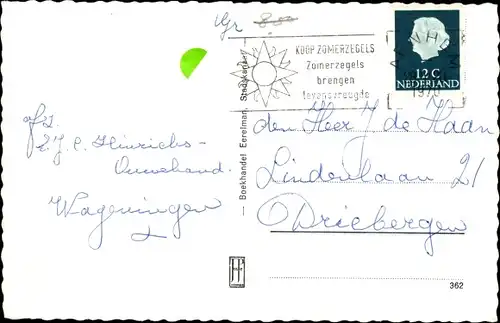 Gr 8.50
KOOP ZOMERZEGELS
Zomerzegels
brengen
levensvreugde
ARNHEM
1970
12 C
NEDERLAND
afz.
Z.J.C. Hinrichs-
Ouwehand.
Wageningen
Boekhandel Eerelman, Stadskanaal
den Heer J de Haan
Lindenlaan 21
Driebergen
362